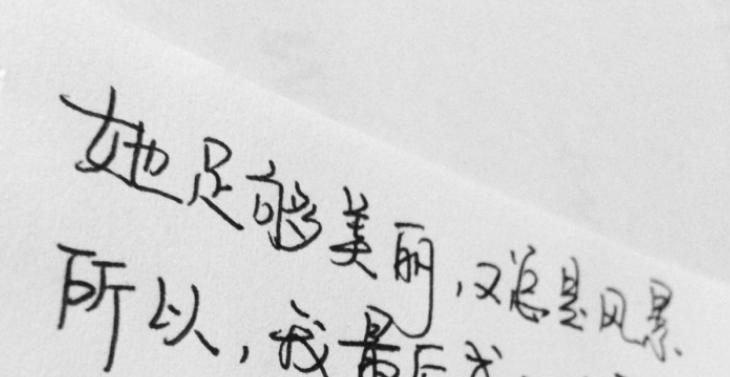 她足够美丽,又总是风景
所以,我最后